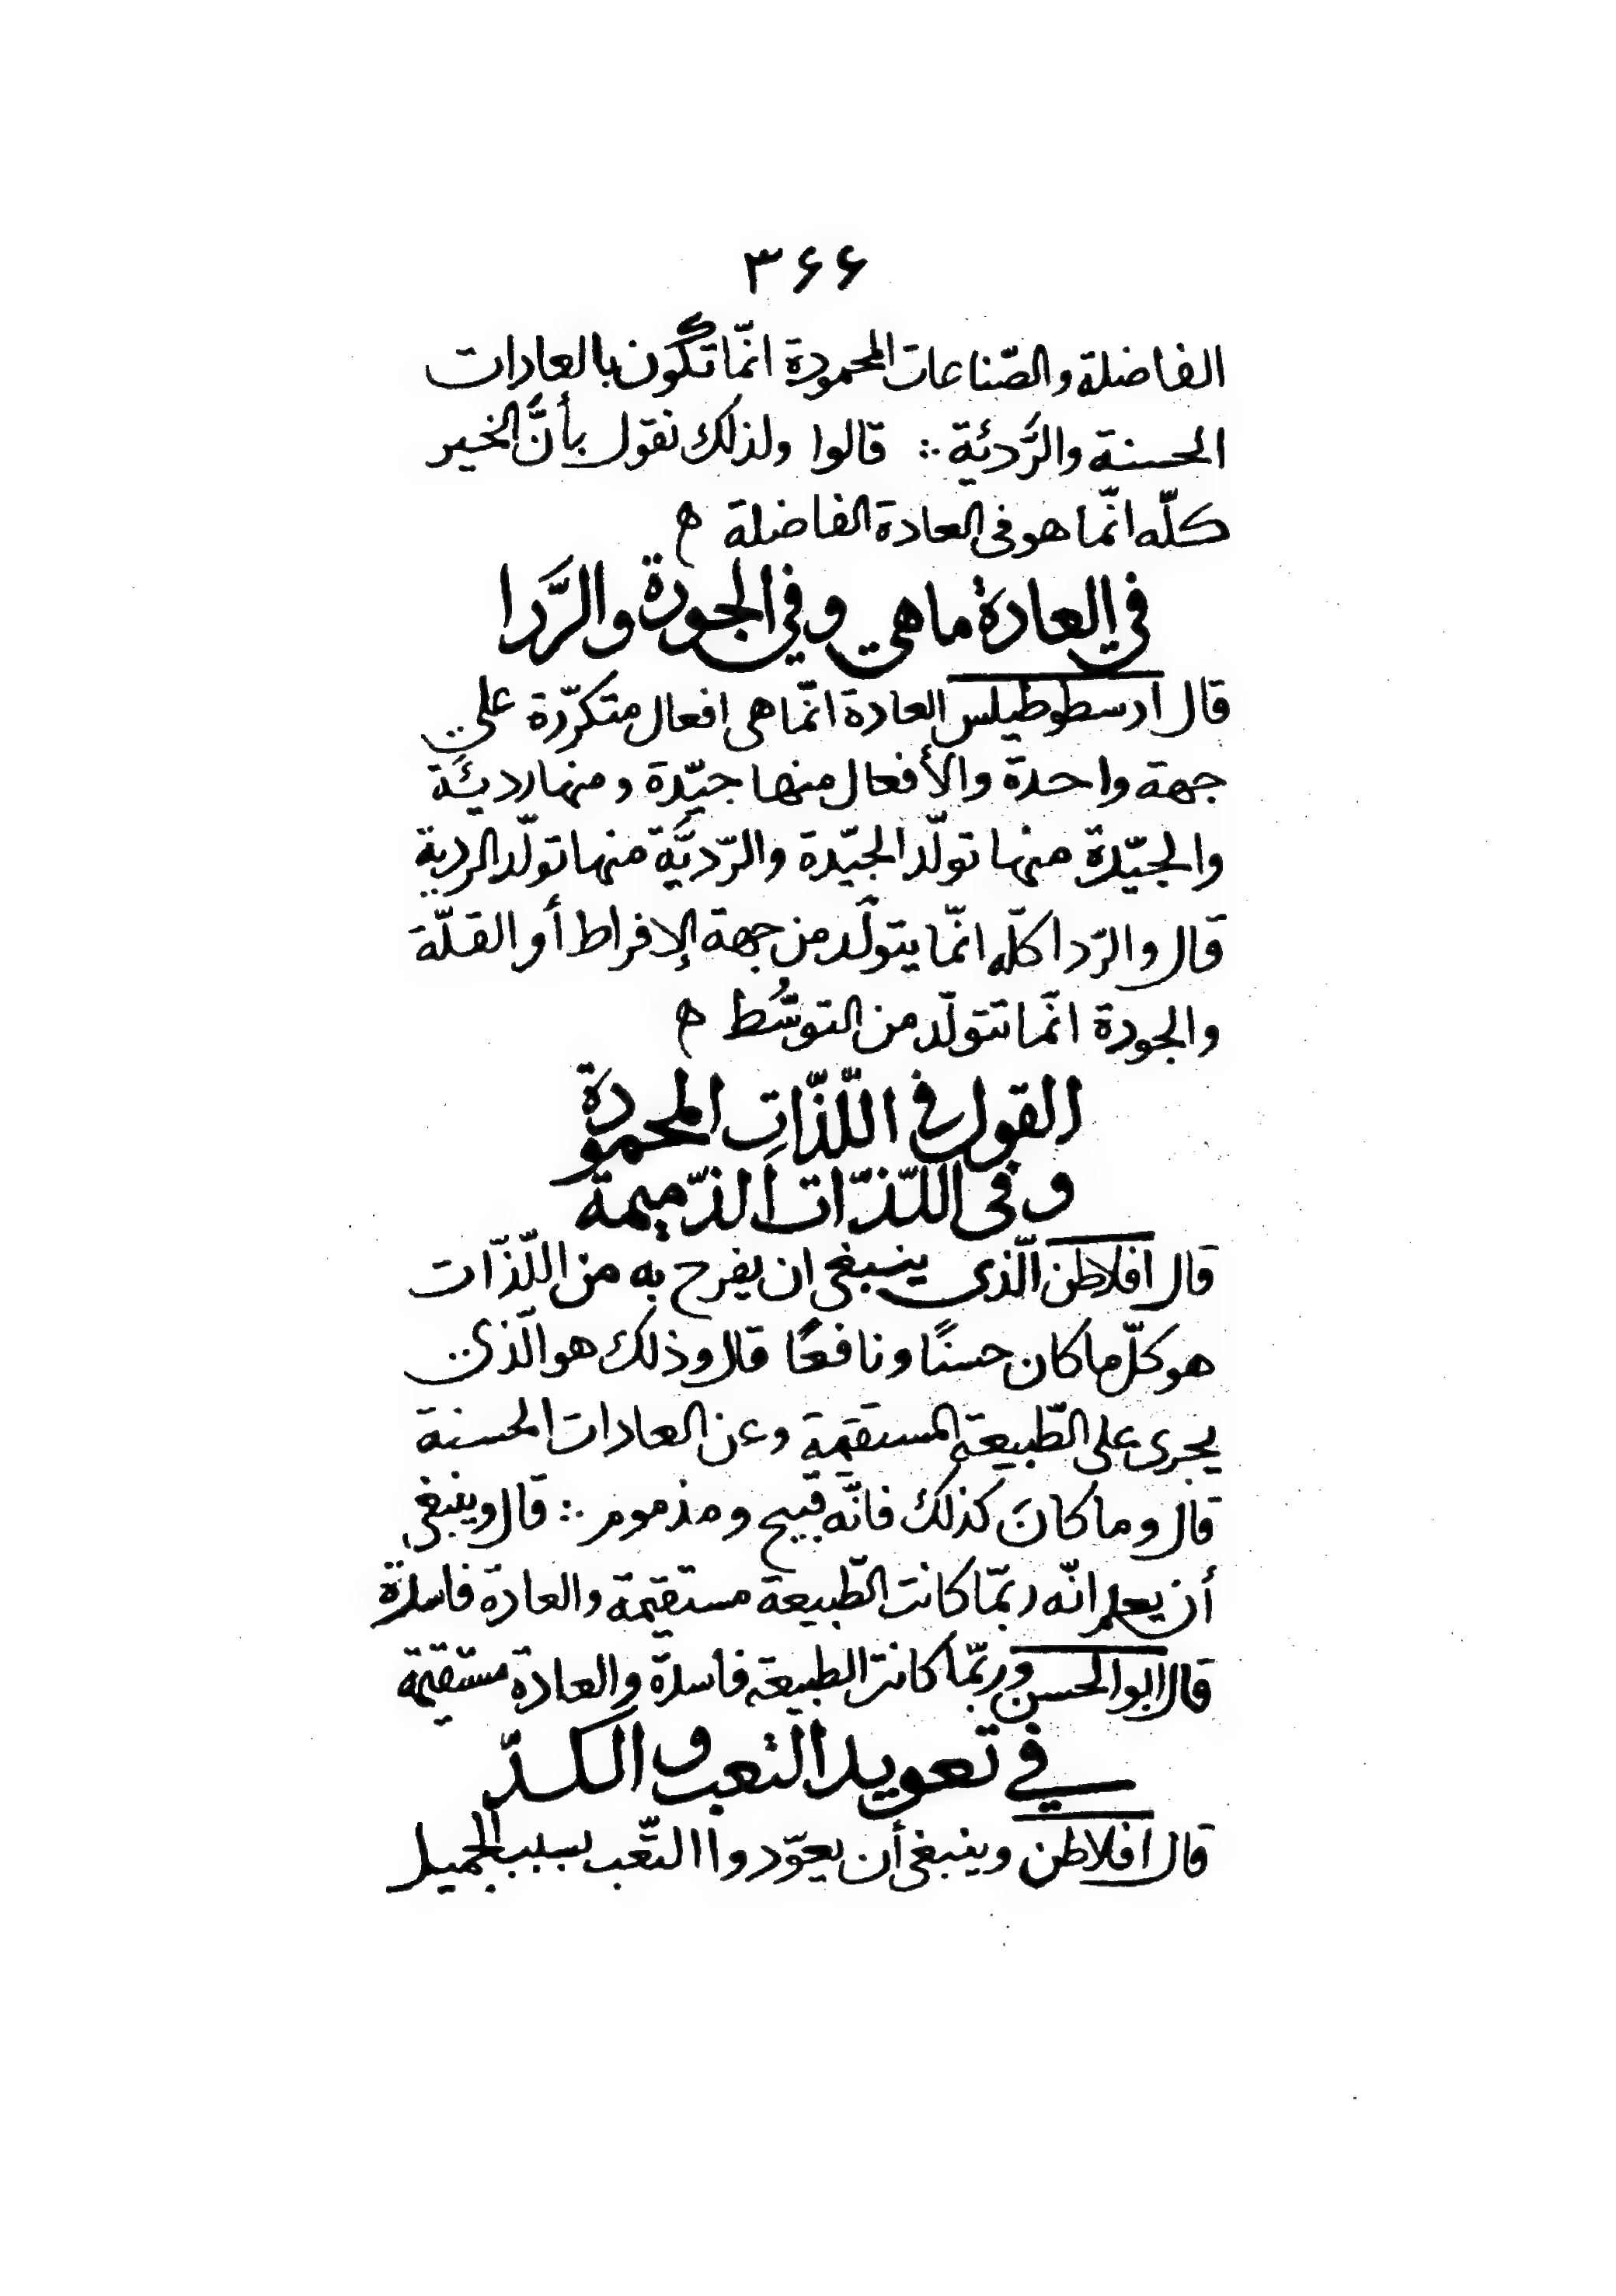 ۳۶۶
الفاضلة والصّناعات المحمودة انّما تكون بالعادات
الحسنة والرَّدئة ∴ قالوا ولذلك نقول بأنَّ الخير
كلّه انّما هو فى العادة الفاضلة ۿ
في العادة ما هي وفي الجودة والرَّدا
قال ارسطوطيلس العادة انّما هى افعال متكرّرة علي
جهة واحدة والأفعال منها جيّدة ومنها رديئَة
والجيّدة منها تولّد الجيّدة والرّديَّة منها تولّد الردية
قال والرّدا كلّه انّما يتولّد من جهة الإفراط أو القلّة
والجودة انّما تتولّد من التوسُّط ۿ
القول فى اللّذّاتِ المحمودة
و فى اللّذّات الذّميمة
قال افلاطن الّذى ينبغى ان يفرح به من اللّذّات
هو كلّ ما كان حسنًا ونافعًا قال وذلك هو الّذي
يجرى على الطّبيعة المستقيمة وعن العادات الحسنة
قال وما كانَ كذلك فانّه قبيح ومذموم ∴ قال وينبغى
أن يعلم انّه ربّما كانت الطّبيعة مستقيمة والعادة فاسدة
قال ابو الحسن وربّما كانت الطبيعة فاسدة والعادة مستقيمة
في تعويد التعب والكدّ
قال افلاطن وينبغى أن يعوّدوا التّعب بسبب الجميل